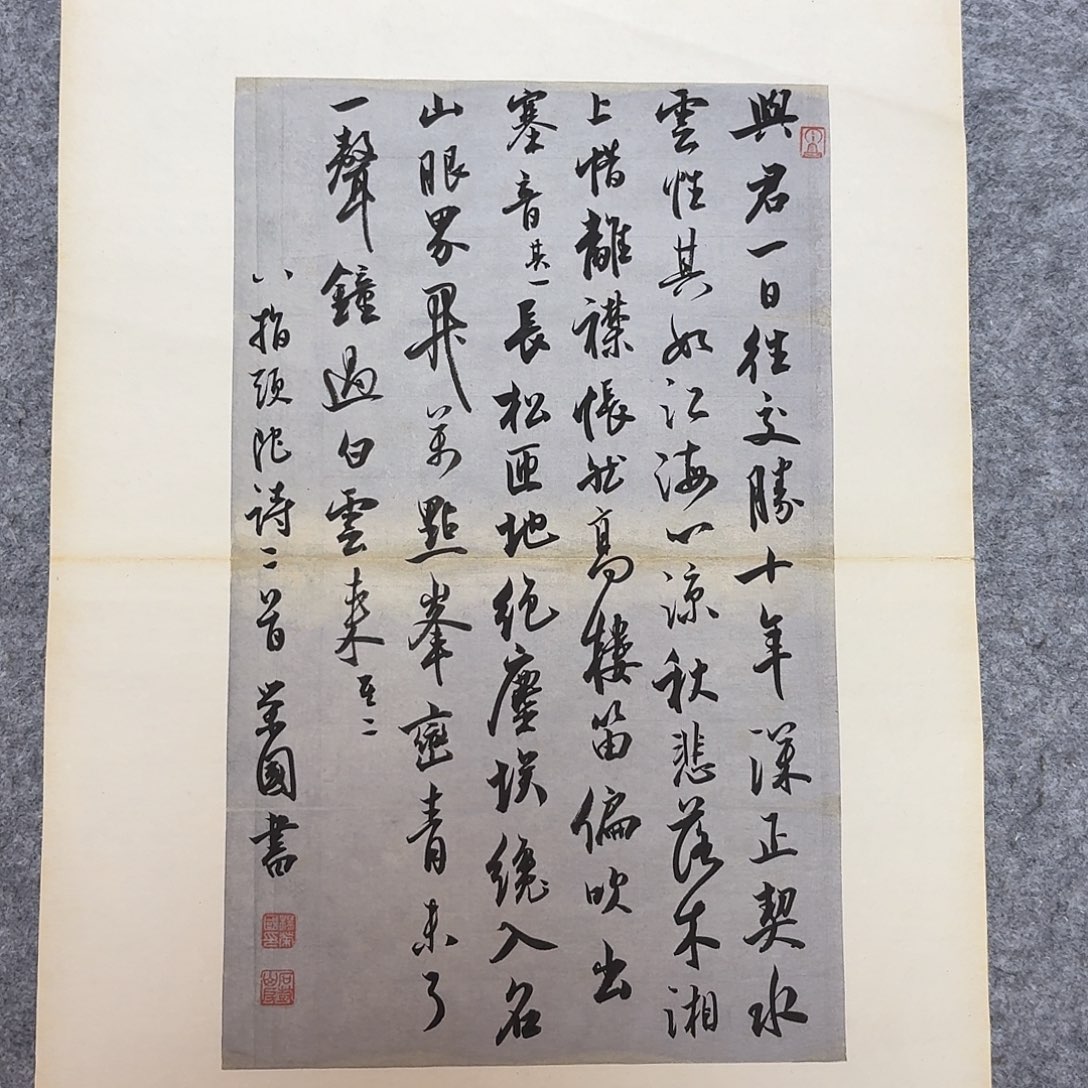 與君一日往交勝十年深正契水
雲性其如江海心涼秋悲落木湘
上惜離襟悵然高樓笛偏吹出
塞音其一長松匝地絕塵埃纔入名
山眼界開萬點峯巒青未了
一聲鐘過白雲來其二
八指頭陀詩二首榮國書